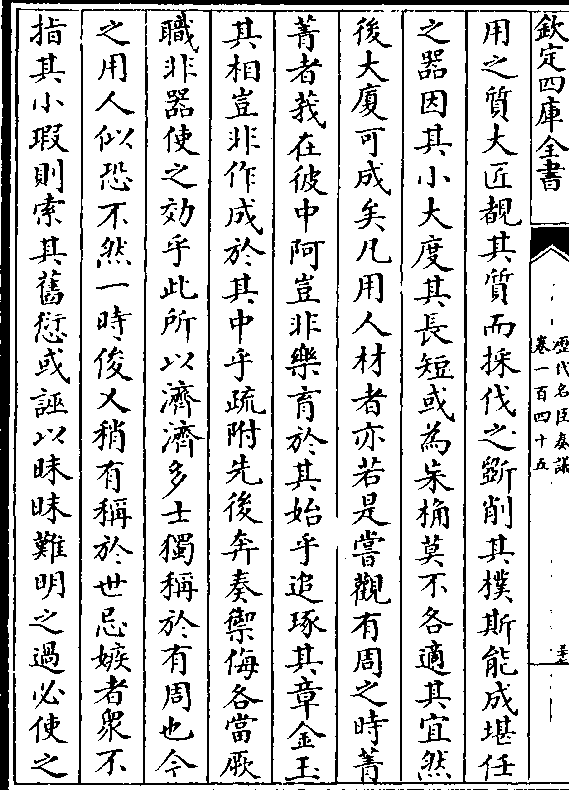 欽定四庫全書
歷代名臣奏議
卷一百四十五
用之質大匠覩其質而採伐之斵削其樸斯能成堪任
之器因其小大度其長短或為宋桷莫不各適其宜然
後大廈可成矣凡用人材者亦若是嘗觀有周之時菁
菁者莪在彼中阿豈非樂育於其始乎追琢其章金玉
其相豈非作成於其中乎疏附先後奔奏禦侮各當厥
職非器使之効乎此所以濟濟多士獨稱於有周也今
之用人似恐不然一時俊乂稍有稱於世忌嫉者衆不
指其小瑕則索其舊愆或誣以昧昧難明之過必使之